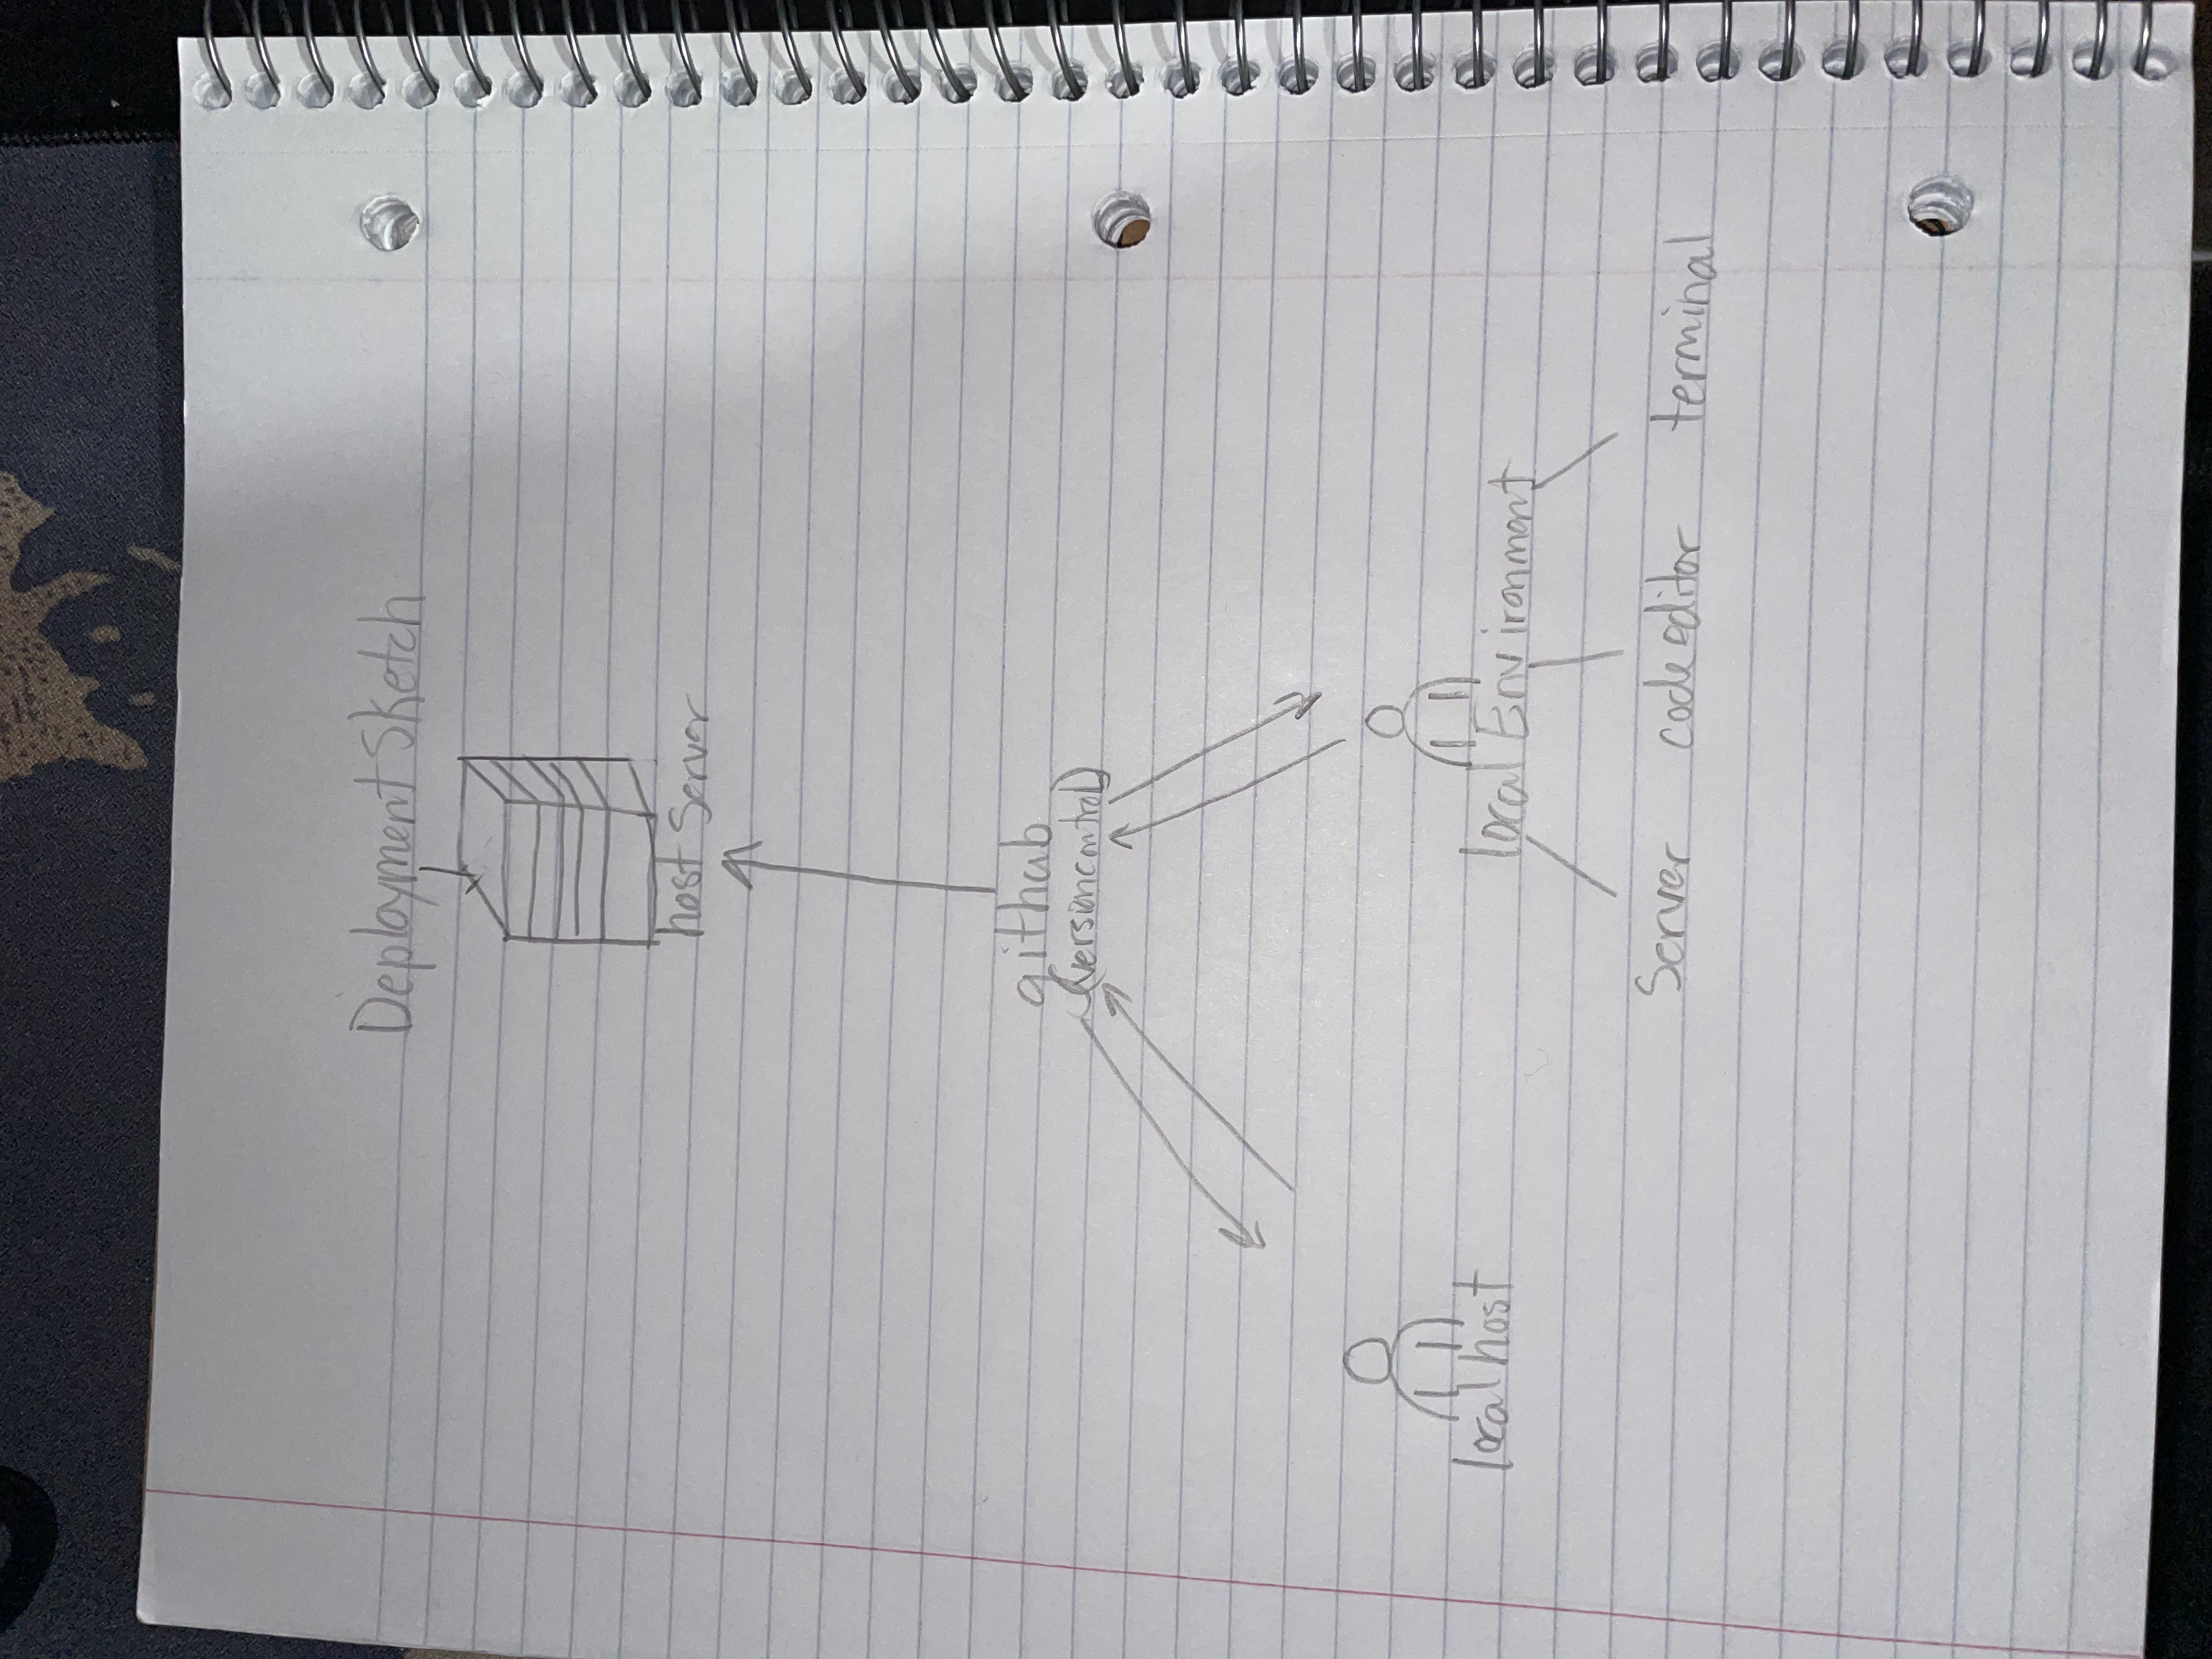 Deployment Sketch
host Server
github
(version control)
local host
local Environment
Server code editor terminal